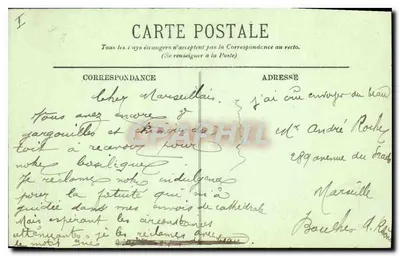 I
CARTE POSTALE
Tous les pays étrangers n'acceptent pas la Correspondance au recto.
(Se renseigner à la Poste)
CORRESPONDANCE
ADRESSE
Cher Marseillais
Vous avez encore
gargouilles et
toit à recevoir pour
notre basilique
Je réclame notre indulgence
pour la fatuité qui m'a
guidée dans mes envois de cathédrale
Mais espérant les circonstances
atténuantes je les réclame avec
le motif
j'ai cru envoyer du beau
Mr André Roche
289 avenue du
Marseille
Bouches d. Rhône